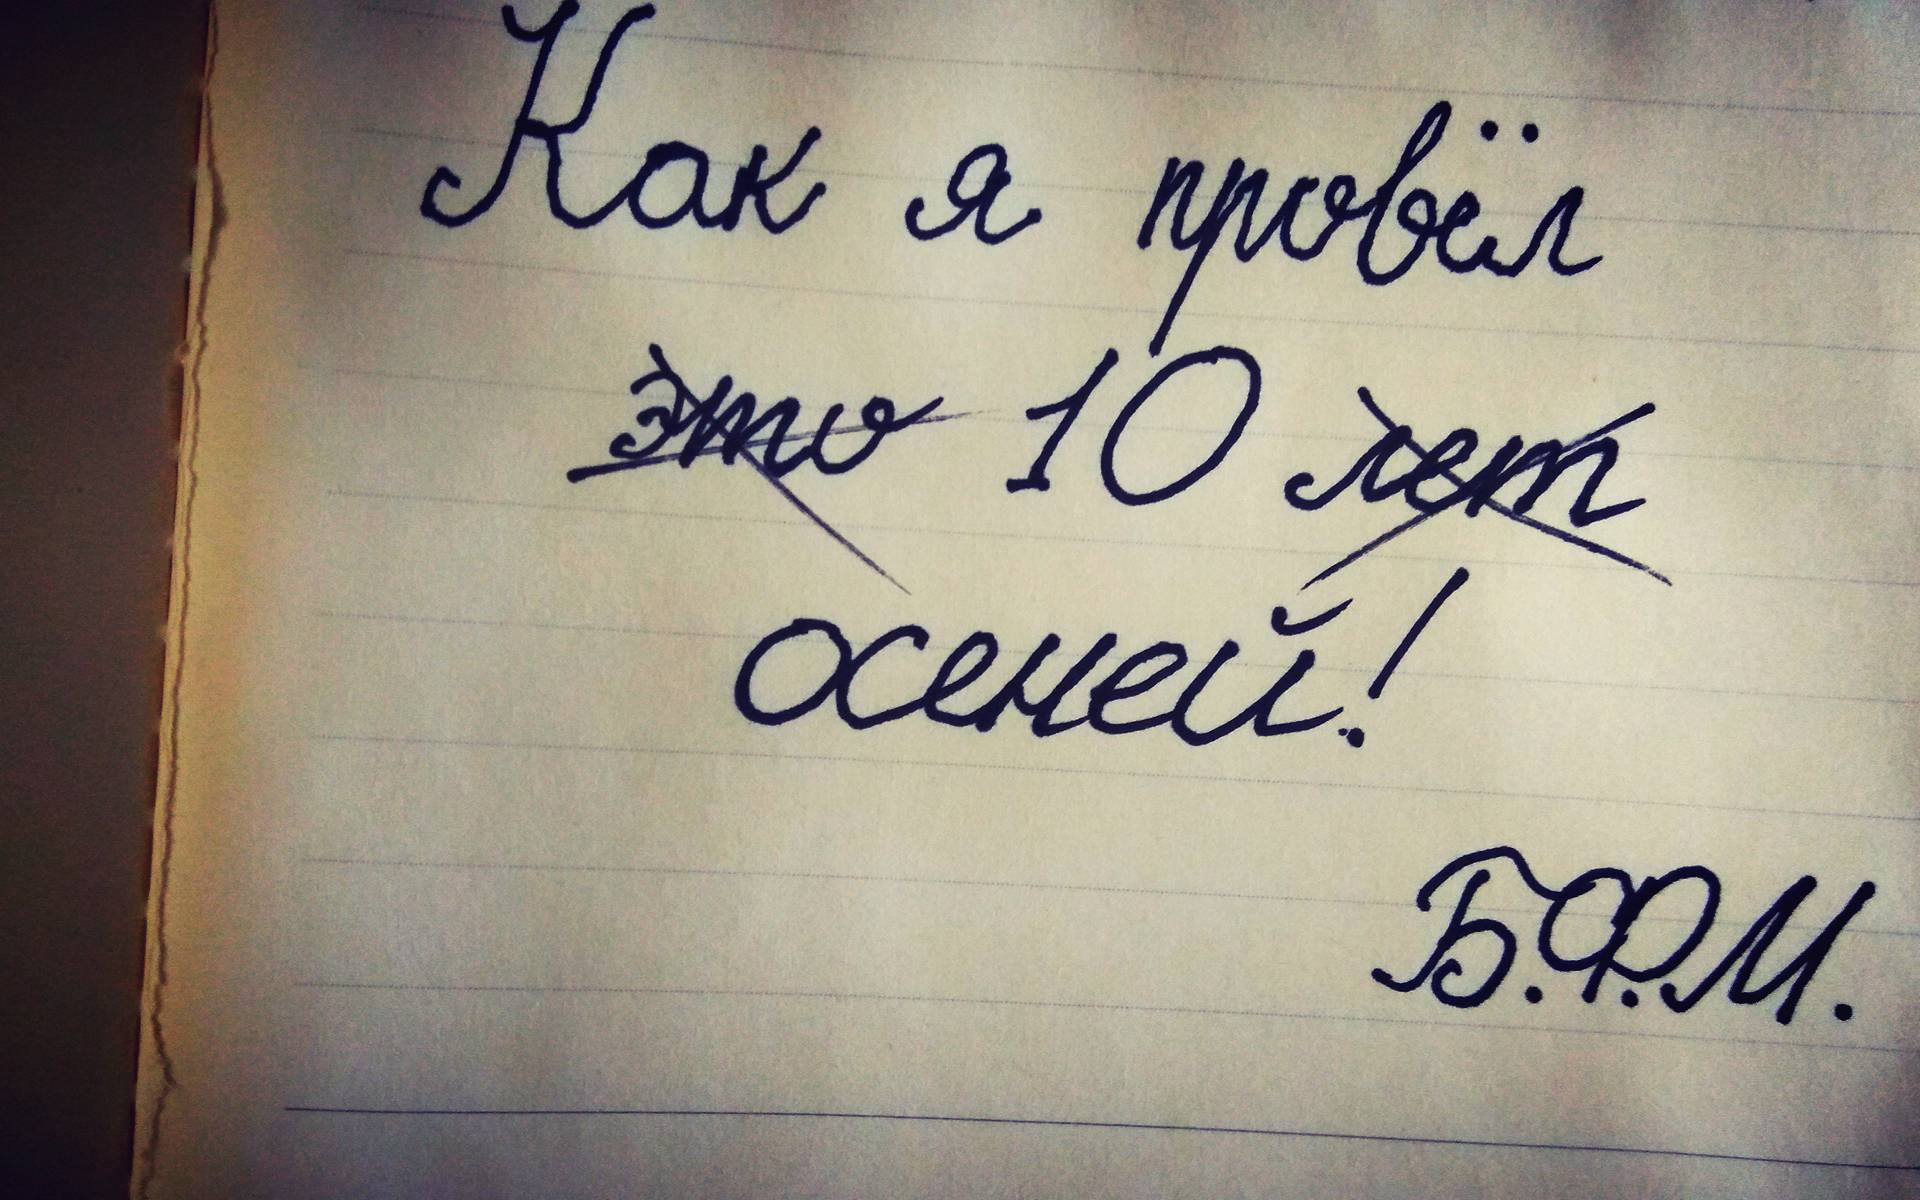 Как я провёл
это 10 лет
осеней!
Б.Ф.М.